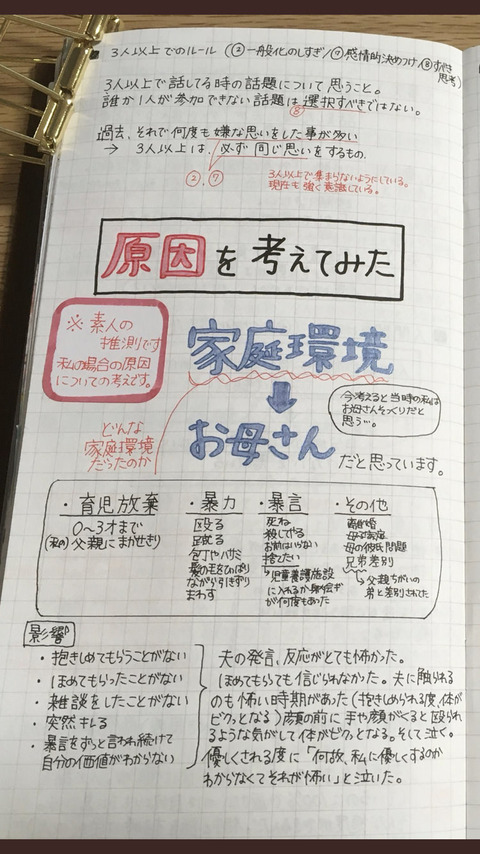 3人以上でのルール(②一般化のしすぎ/⑦感情的決めつけ/⑧すべき思考)
3人以上で話してる時の話題について思うこと。
誰か1人が参加できない話題は選択すべきではない。
⑧
過去、それで何度も嫌な思いをした事が多い
→ 3人以上は、必ず同じ思いをするもの。
②,⑦
3人以上で集まらないようにしている。
現在も強く意識している。
原因を考えてみた
※素人の
推測です
私の場合の原因
についての考えです。
家庭環境
お母さん
だと思っています。
今考えると当時の私は
お母さんそっくりだと
思う…。
どんな
家庭環境
だったのか
・育児放棄
0〜3才まで
(私の)父親にまかせきり
・暴力
殴る
蹴る
包丁やハサミ
髪の毛をひっぱり
ながら引きずり
まわす
・暴言
死ね
殺してやる
お前はいらない
捨てたい
児童養護施設
に入れるか
が何度もあった
・その他
離婚
母の彼氏問題
兄弟差別
父親ちがいの
弟と差別されてた
影響
・抱きしめてもらうことがない
・ほめてもらったことがない
・雑談をしたことがない
・突然キレる
・暴言をずっと言われ続けて
自分の価値がわからない
夫の発言、反応がとても怖かった。
ほめてもらても信じられなかった。夫に触られる
のも怖い時期があった(抱きしめられる度、体が
ビクっとなる)顔の前に手や顔がくると殴られ
るような気がして体がビクっとなる。そして泣く。
優しくされる度に「何故、私に優しくするのか
わからなくてそれが怖い」と泣いた。